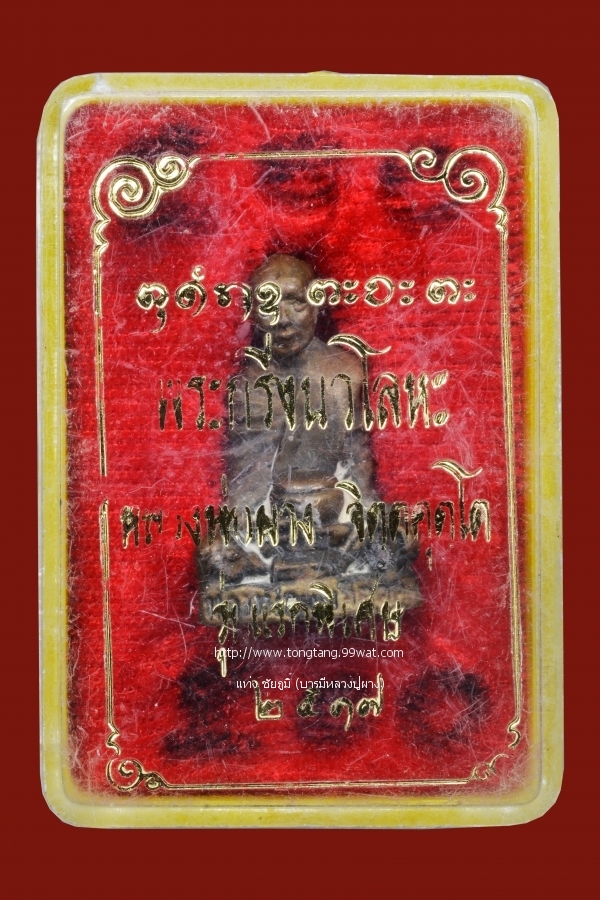 ตะ
พระกริ่งนวโลหะ
หลวงพ่อผาง จิตฺตคุตฺโต
รุ่นแรกพิเศษ
http://www.tongtang.99wat.com
แท่ง ชัยภูมิ (บารมีหลวงปู่ผาง)
๒๕๑๗